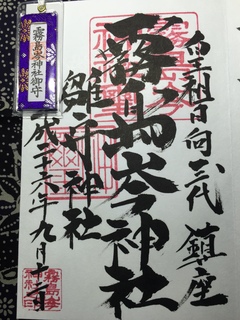 皇祖日向三代鎮座
霧島岑神社
雛守神社
平成二十六年九月十一日
霧島岑神社御守
霧島岑